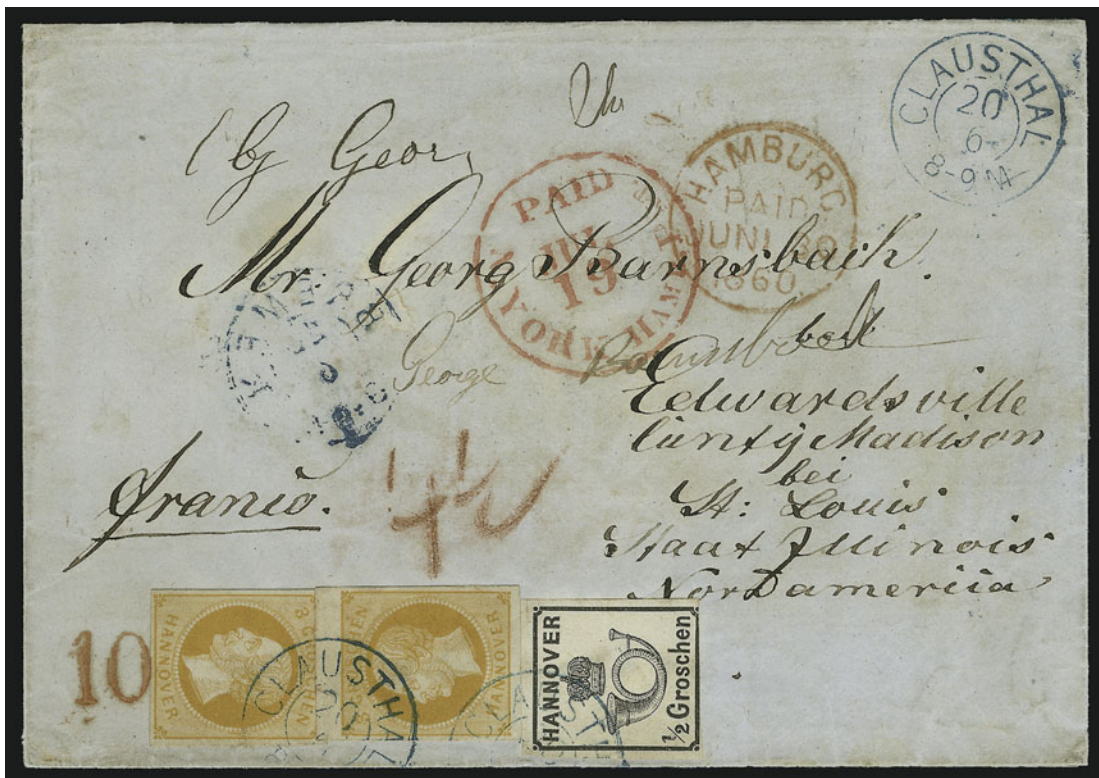 CLAUSTHAL
20
6
8-9 M
HAMBURG
PAID
JUNI 30
1860
PAID
JUL
19
YORK HAM PKT
Geor
Mr. Georg Barnsbach.
George
Edwardsville
Cünty Madison
bei
St: Louis
Staat Illinois
Nordameriia
franco.
10
HANNOVER
3 GROSCHEN
HANNOVER
HANNOVER
1/2 Groschen
CLAUSTHAL
20
CLAUSTH